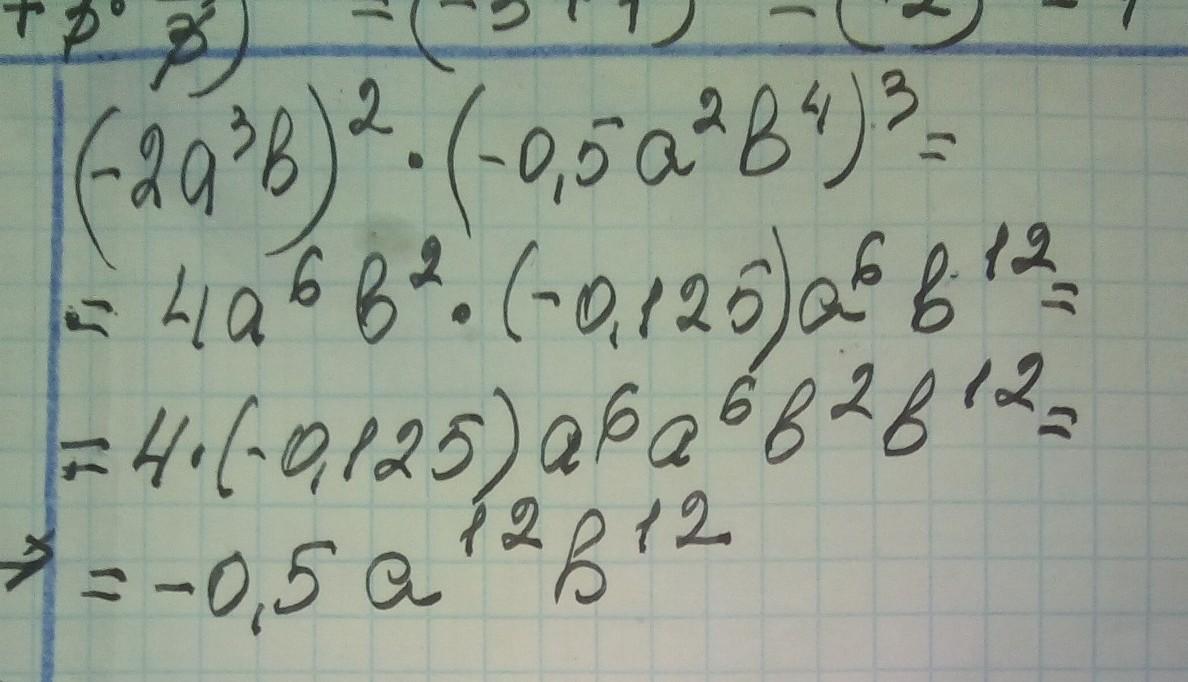 = (-3+1) = (-2) = 1
(-2a³b)² · (-0,5a²b⁴)³ =
= 4a⁶b² · (-0,125)a⁶b¹² =
= 4·(-0,125)a⁶a⁶b²b¹² =
= -0,5a¹²b¹²